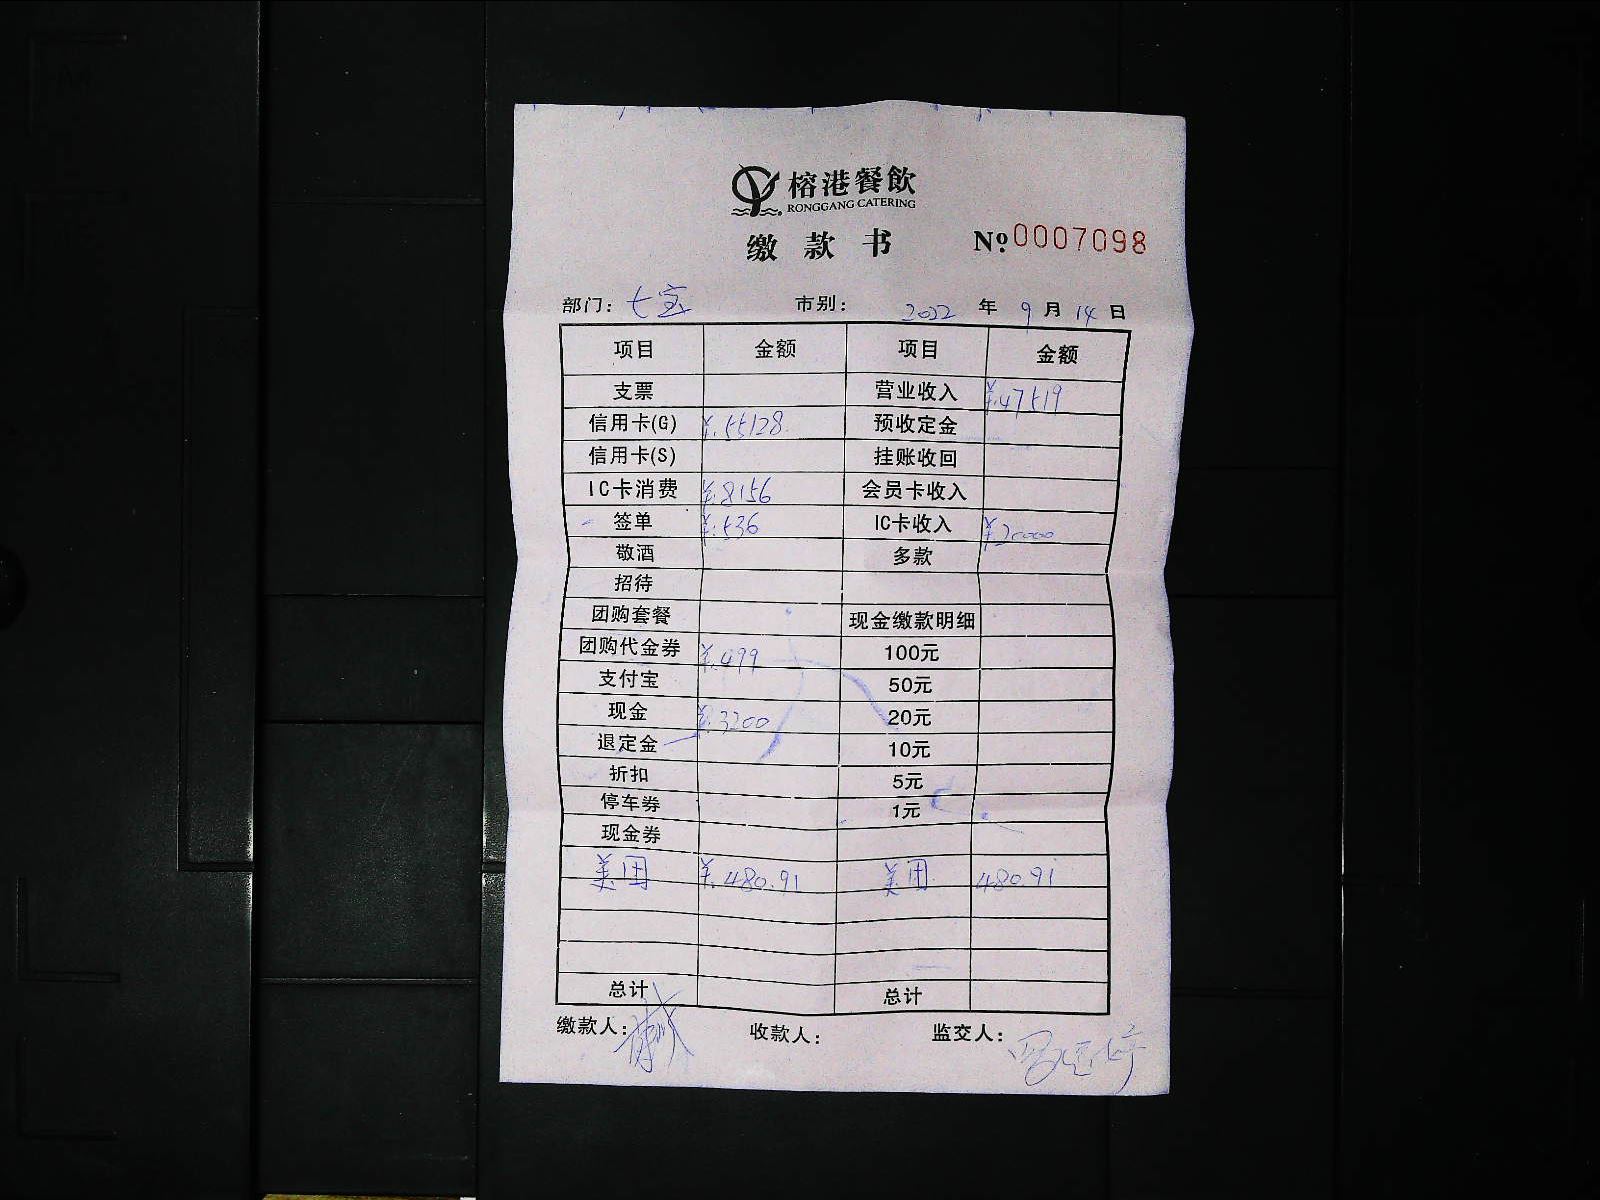 榕港餐飲
RONGGANG CATERING
缴款书 №0007098
部门：七宝 市别： 2022 年 9 月 14 日
项目 金额 项目 金额
支票 营业收入 ¥.47519
信用卡(G) ¥.55128 预收定金
信用卡(S) 挂账收回
IC卡消费 ¥.8156 会员卡收入
签单 ¥.536 IC卡收入 ¥20000
敬酒 多款
招待
团购套餐 现金缴款明细
团购代金券 ¥.499 100元
支付宝 50元
现金 ¥.3200 20元
退定金 10元
折扣 5元
停车券 1元
现金券
美团 ¥.480.91 美团 480.91
总计 总计
缴款人： 收款人： 监交人：